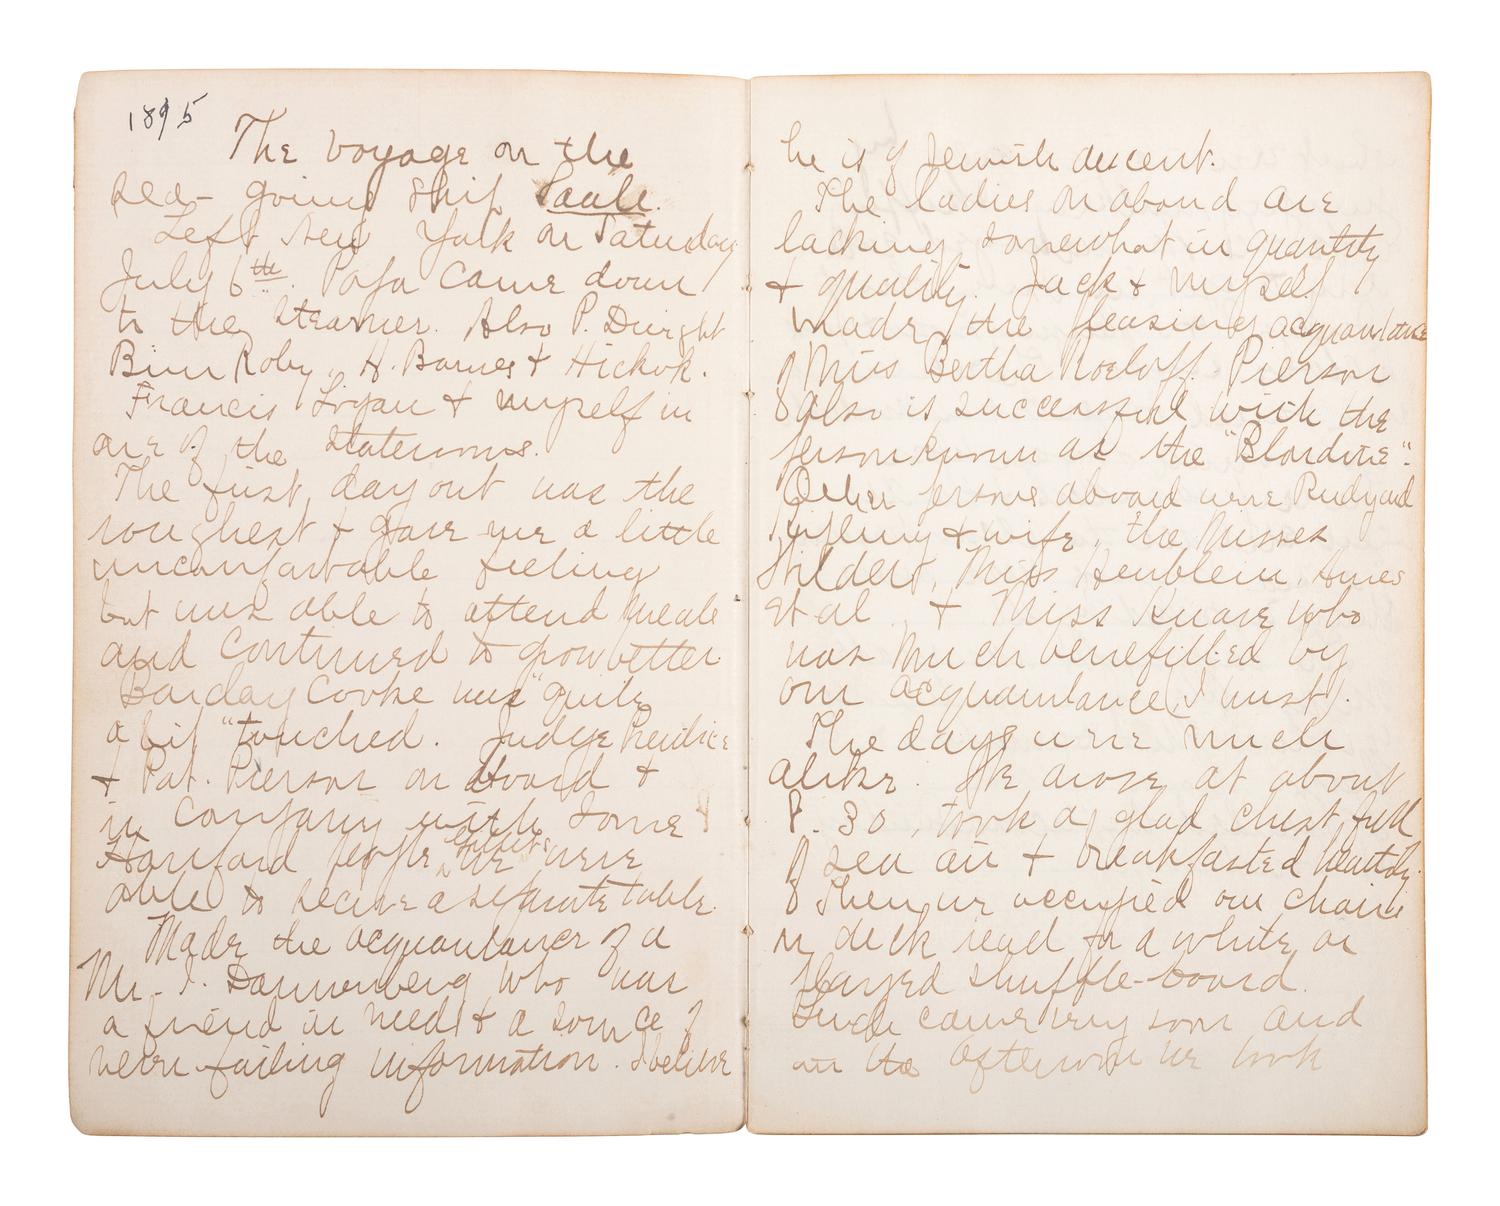 1895
The voyage on the
sea-going ship Saale.
Left New York on Saturday
July 6th. Papa came down
to the steamer. Also P. Dwight
Bim Roby, H. Barnes & Hickok.
Francis Logan & myself in
one of the staterooms.
The first day out was the
roughest & gave me a little
uncomfortable feeling
but was able to attend meals
and continued to grow better.
Barclay Cooke was "quite
a bit "touched. Judge Prentice
& Pat. Pierson on board &
in company with some
Hartford people we were
able to secure a separate table.
Made the acquaintance of a
Mr. I. Dannenberg who was
a friend in need & a source of
never-failing information. I believe
he is of Jewish descent.
The ladies on aboard are
lacking somewhat in quantity
& quality. Jack & myself
made the pleasing acquaintance
of Miss Bertha Roeloff. Pierson
also is successful with the
person known as the "Blondine".
Other persons aboard were Rudyard
Kipling & wife, the Misses
Miss Heublein, Ames
et al & Miss Knave who
was much benefitted by
our acquaintance (I trust).
The days were much
alike. We arose at about
8.30, took a glad chest full
of sea air & breakfasted heartily.
Then we occupied our chairs
on deck read for a while, or
played shuffle-board.
Lunch came very soon and
in the afternoon we took